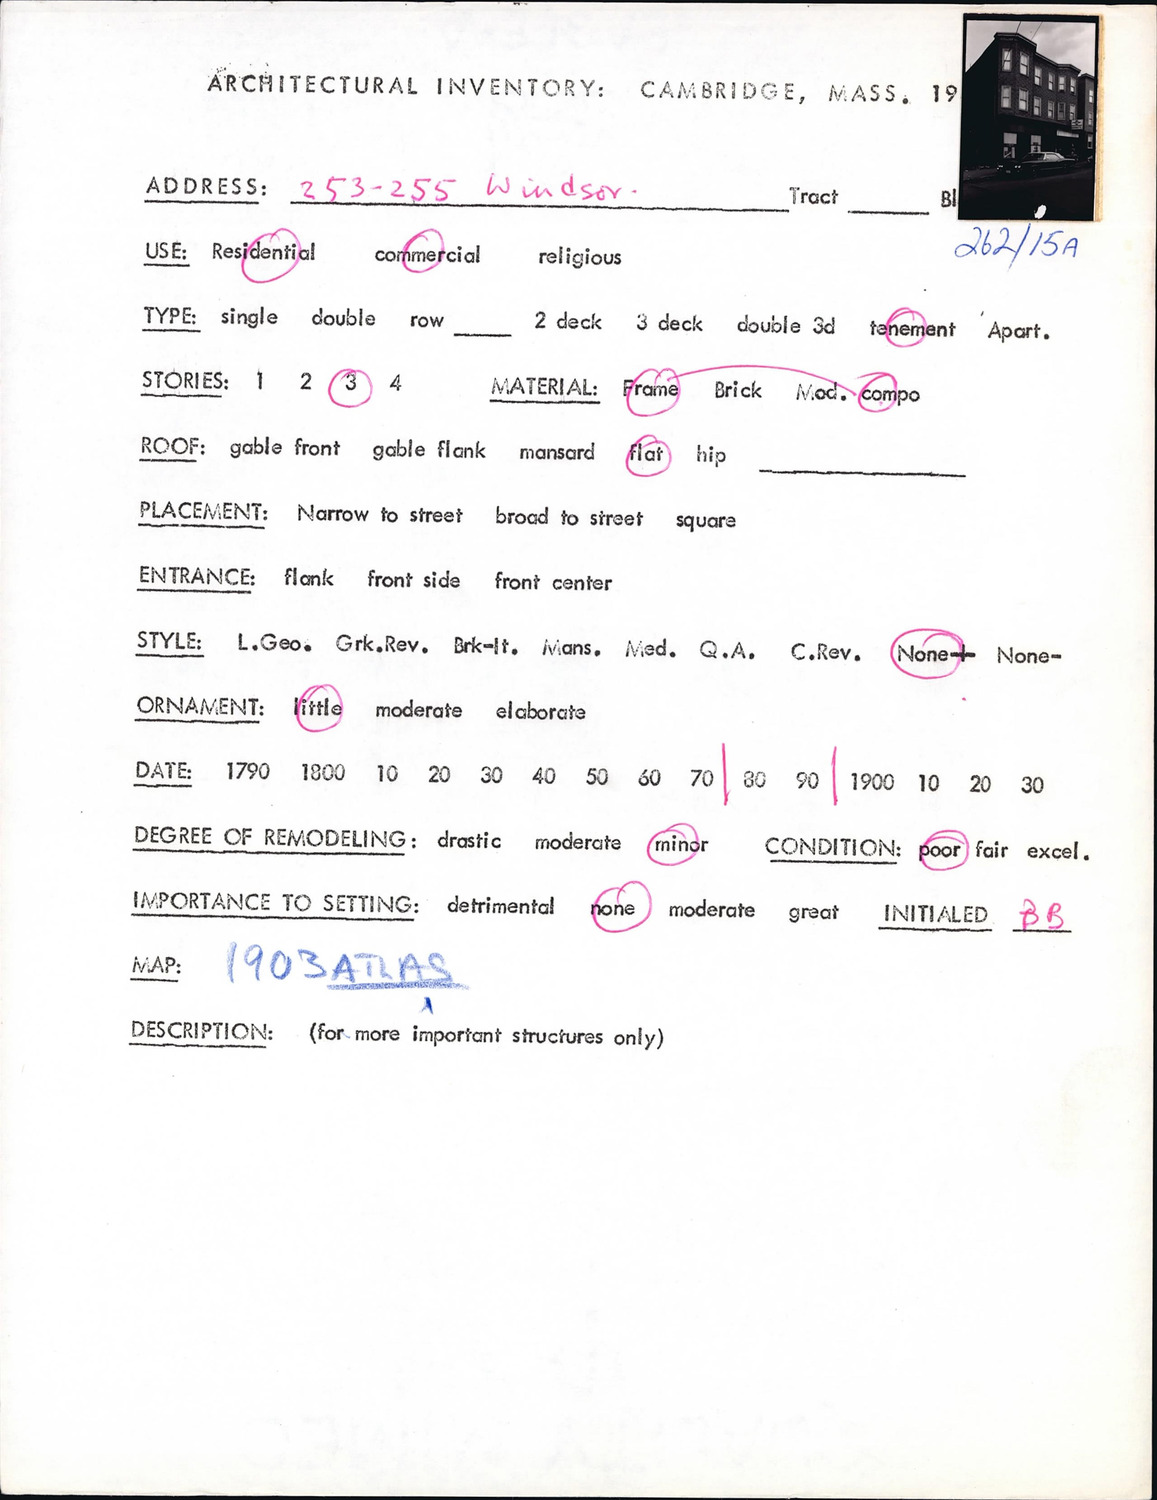 ARCHITECTURAL INVENTORY: CAMBRIDGE, MASS. 19
ADDRESS: 253-255 Windsor. Tract ____ Bl
262/15A
USE: Residential commercial religious
TYPE: single double row ____ 2 deck 3 deck double 3d tenement Apart.
STORIES: 1 2 3 4 MATERIAL: Frame Brick Mod. compo
ROOF: gable front gable flank mansard flat hip ____
PLACEMENT: Narrow to street broad to street square
ENTRANCE: flank front side front center
STYLE: L.Geo. Grk.Rev. Brk-It. Mans. Med. Q.A. C.Rev. None+ None-
ORNAMENT: little moderate elaborate
DATE: 1790 1800 10 20 30 40 50 60 70 80 90 1900 10 20 30
DEGREE OF REMODELING: drastic moderate minor CONDITION: poor fair excel.
IMPORTANCE TO SETTING: detrimental none moderate great INITIALED BB
MAP: 1903 ATLAS
DESCRIPTION: (for more important structures only)